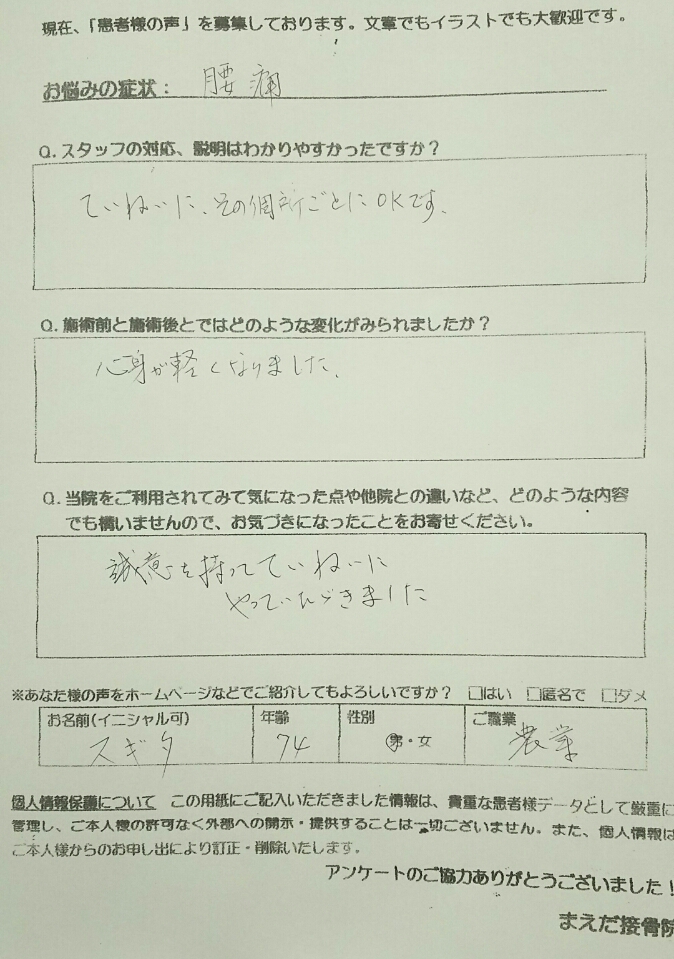 現在、「患者様の声」を募集しております。文章でもイラストでも大歓迎です。
お悩みの症状： 腰痛
Q. スタッフの対応、説明はわかりやすかったですか？
ていねいに、その個所ごとにOKです。
Q. 施術前と施術後とではどのような変化がみられましたか？
心身が軽くなりました。
Q. 当院をご利用されてみて気になった点や他院との違いなど、どのような内容
でも構いませんので、お気づきになったことをお寄せください。
誠意を持ってていねいに
やっていただきました
※あなた様の声をホームページなどでご紹介してもよろしいですか？ □はい □匿名で □ダメ
お名前(イニシャル可) 年齢 性別 ご職業
スギタ 74 男・女 農業
個人情報保護について この用紙にご記入いただきました情報は、貴重な患者様データとして厳重に
管理し、ご本人様の許可なく外部への開示・提供することは一切ございません。また、個人情報は
ご本人様からのお申し出により訂正・削除いたします。
アンケートのご協力ありがとうございました！
まえだ接骨院